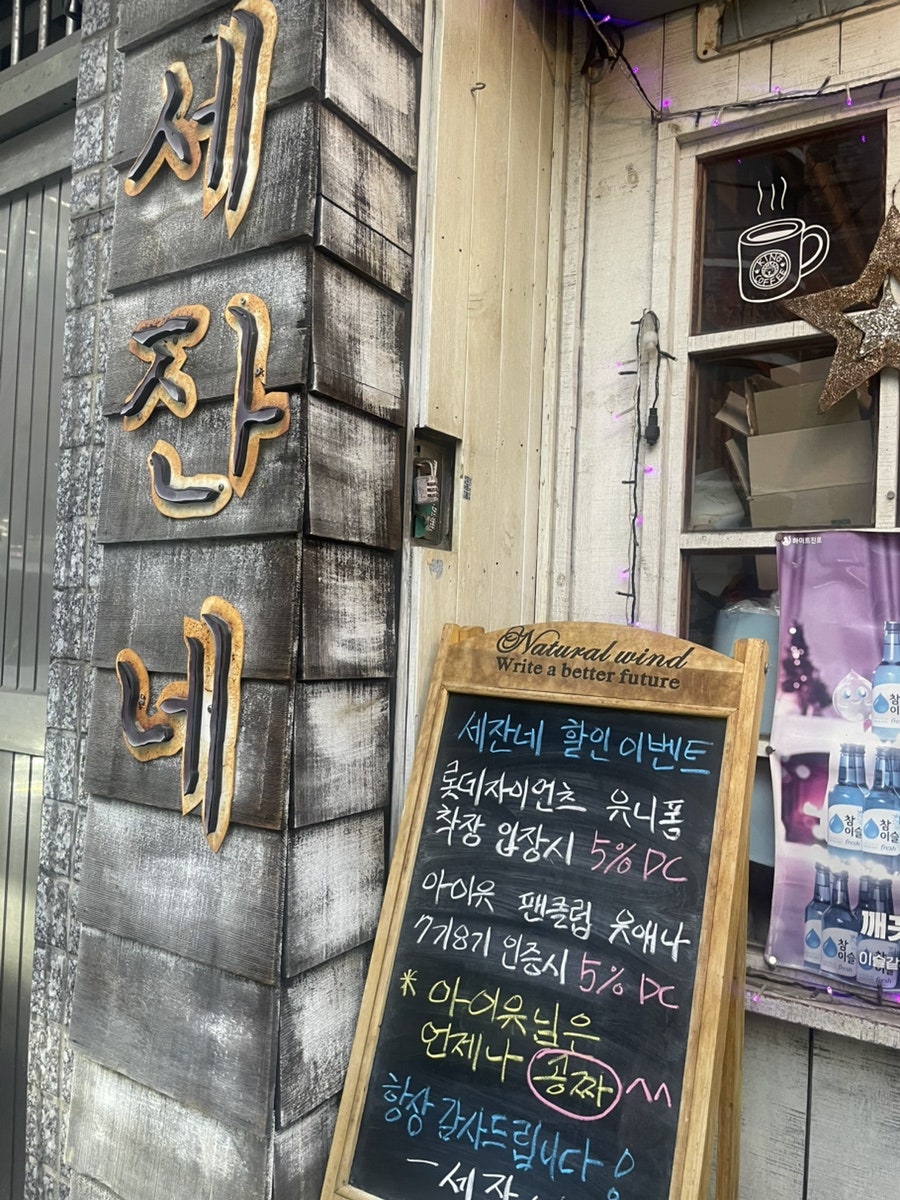 세잔네
KING
COFFEE
하이트진로
Natural wind
Write a better future
세잔네 할인 이벤트
롯데자이언츠 유니폼
착장 입장시 5% DC
아이유 팬클럽 유애나
7기8기 인증시 5% DC
* 아이유님은
언제나 공짜 ^^
항상 감사드립니다
참이슬
fresh
참이슬
fresh
참이슬
fresh
깨끗
이슬같